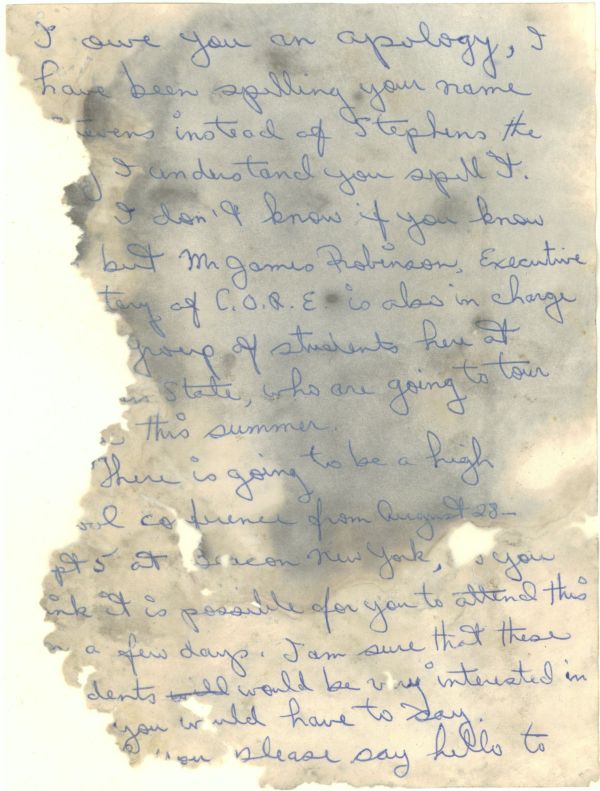 I owe you an apology, I
have been spelling your name
tevens instead of Stephens the
y I understand you spell it.
I don't know if you know
but Mr James Robinson, Executive
tary of C.O.R.E. is also in charge
group of students here at
State, who are going to tour
this summer.
There is going to be a high
ool co ference from August 28-
pt 5 at Beacon New York, you
ink it is possible for you to attend this
n a few days. I am sure that these
dents would be very interested in
you w uld have to say.
please say hello to